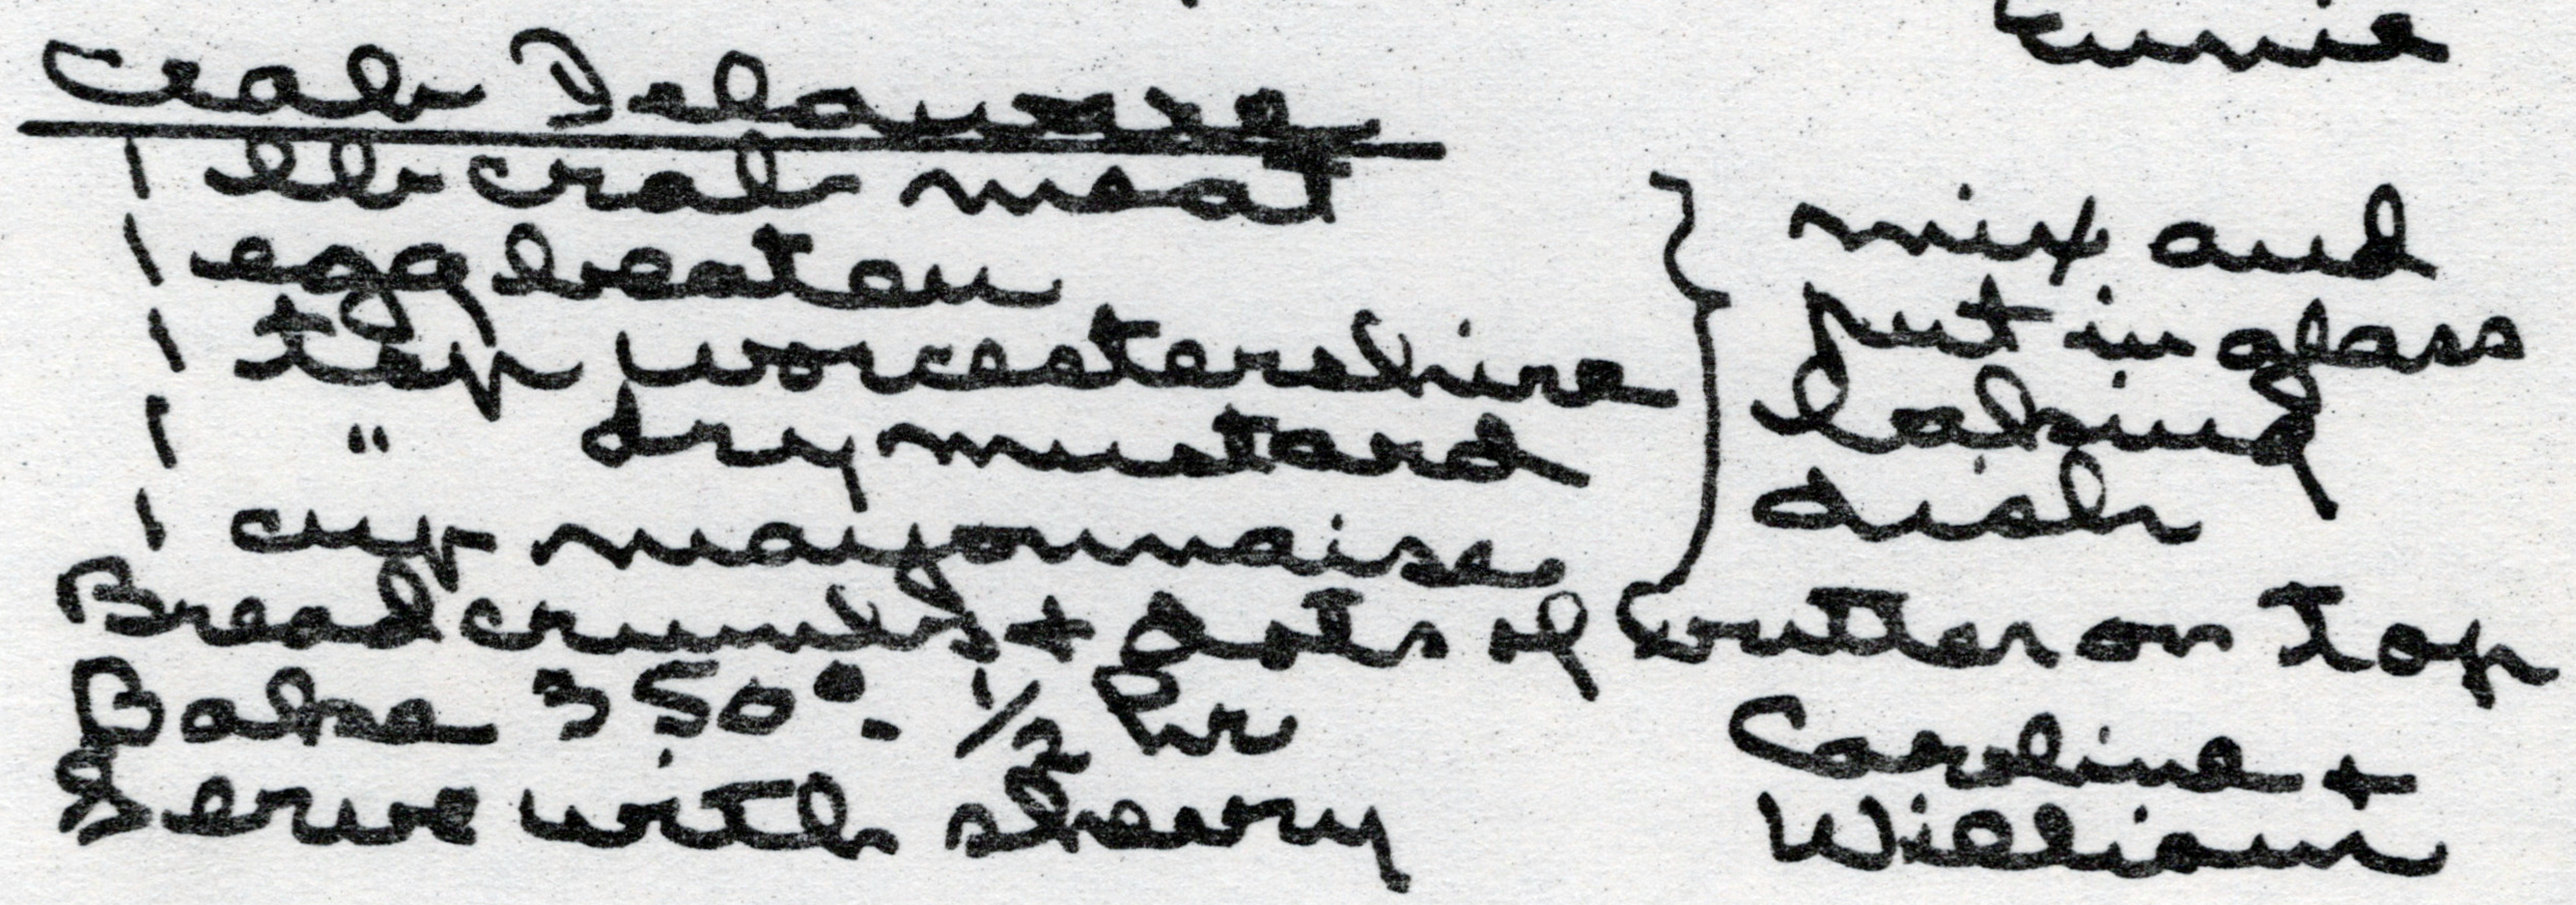 Eunie
Crab Delaware
1 lb crab meat
1 egg beaten
1 tsp worcestershire
1 " dry mustard
1 cup mayonnaise
} mix and
put in glass
baking
dish
Bread crumbs + dots of butter on top
Bake 350°. 1/2 hr
Serve with sherry
Caroline +
William